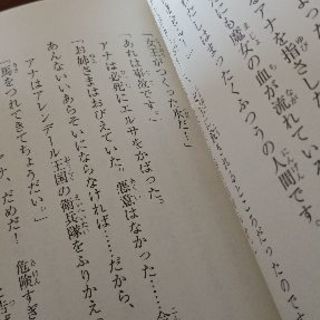 アナを指さした
にも魔女の血が流れている
はまったくふつうの人間です。
「女王がつくった氷だ…」
「あれは事故です。」
アナは必死にエルサをかばった。
「お姉さまはおびえていた。悪意はなかった……
あんないいあらそいにならなければ……だから、
アナはアレンデール王国の衛兵隊をふりかえ
「馬をつれてきてちょうだい！」
だめだ！　危険すぎ